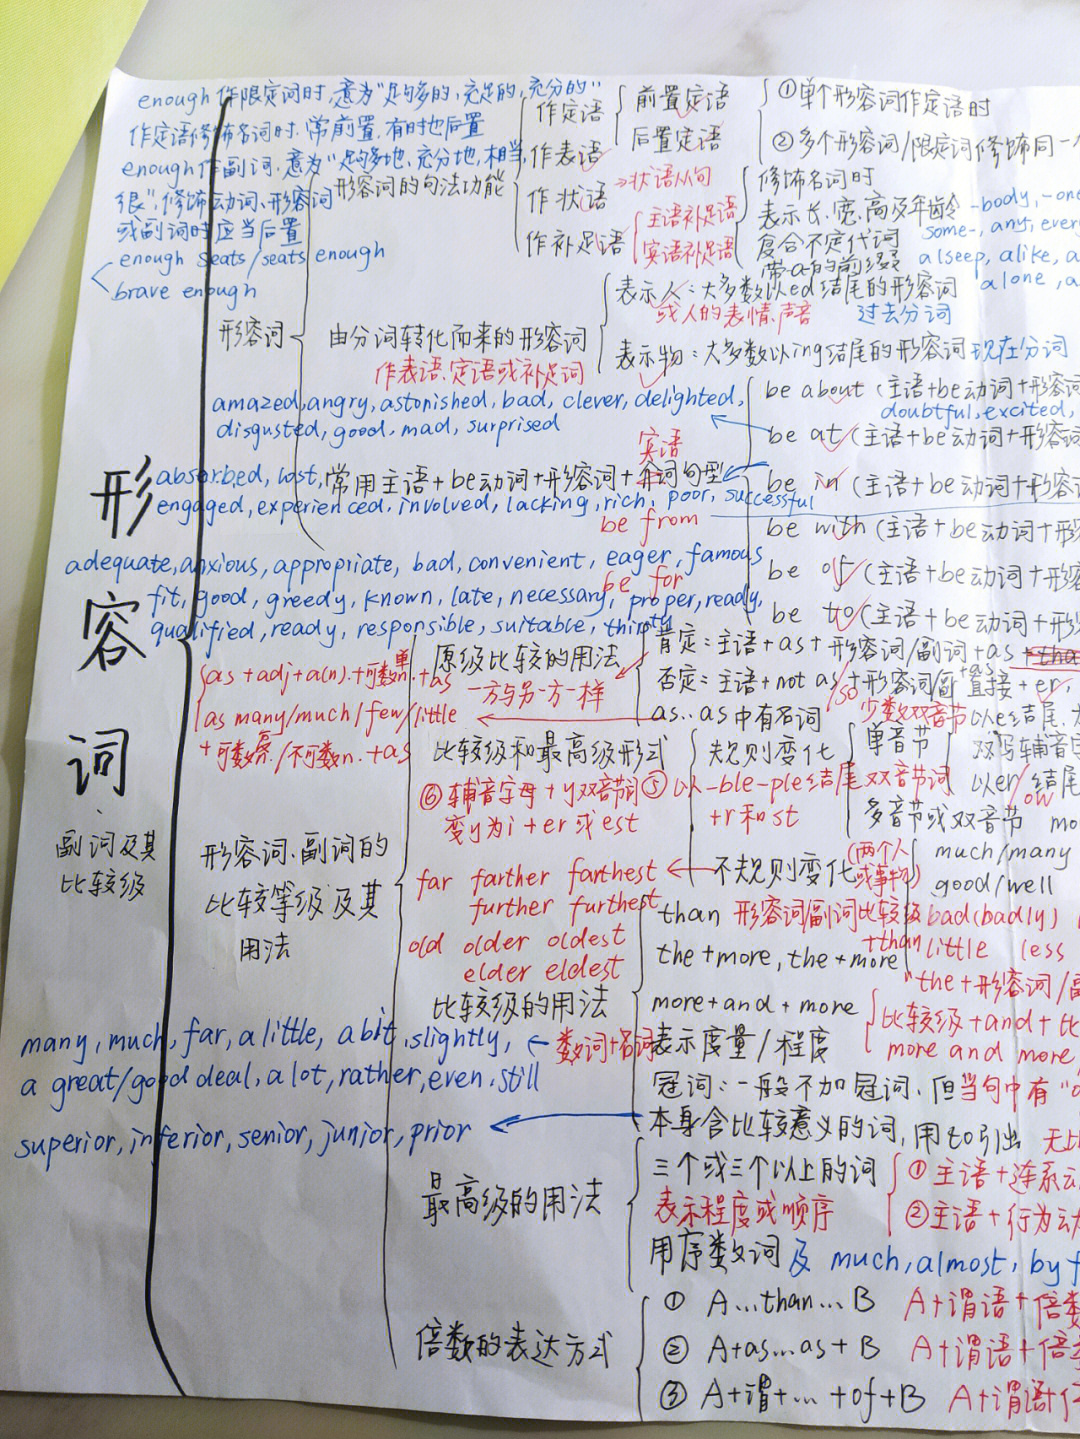 enough作限定词时,意为"足够多的,充足的,充分的"
作定语修饰名词时,常前置,有时也后置
enough作副词,意为"足够地、充分地,相当,
很",修饰动词、形容词
或副词时应当后置
enough seats/seats enough
brave enough
形容词
形容词的句法功能
作定语
前置定语
后置定语
①单个形容词作定语时
②多个形容词/限定词修饰同一
作表语
作状语
→状语从句
作补足语
主语补足语
宾语补足语
修饰名词时
表示长、宽、高及年龄
复合不定代词
-body, -one
some-, any, every
带-a-的前缀
alseep, alike, a
alone, a
由分词转化而来的形容词
作表语、定语或补足词
表示人:大多数以ed结尾的形容词
或人的表情、声音
过去分词
表示物:大多数以ing结尾的形容词 现在分词
amazed, angry, astonished, bad, clever, delighted,
disgusted, good, mad, surprised
be about (主语+be动词+形容词
doubtful, excited,
be at (主语+be动词+形容
宾语
absorbed, lost,
常用主语+be动词+形容词+介词句型
be in (主语+be动词+形容词
engaged, experienced, involved, lacking, rich, poor, successful
be from
be with (主语+be动词+形
adequate, anxious, appropriate, bad, convenient, eager, famous
be for
be of (主语+be动词+形容
fit, good, greedy, known, late, necessary, proper, ready,
be to (主语+be动词+形
qualified, ready, responsible, suitable, thirsty
形容词
副词及其
比较级
形容词、副词的
比较等级及其
用法
原级比较的用法
肯定:主语+as+形容词/副词+as
否定:主语+not as/so+形容词/副+as
一方与另一方一样
as…as中有名词
as+adj+a(n).+可数n.单+as
as many/much/few/little
+可数n./不可数n.+as
比较级和最高级形式
规则变化
单音节
直接+er,
少数双音节
以e结尾,
双写辅音字
以er/ow结尾
多音节或双音节 mo
⑤以-ble-ple结尾双音节词
+r和st
⑥辅音字母+y双音节词
变y为i+er或est
不规则变化
(两个人
或事物)
much/many
good/well
bad(badly)
little less
far farther farthest
further furthest
old older oldest
elder eldest
比较级的用法
than 形容词/副词比较级
+than
the+more, the+more
"the+形容词/副
more+and+more
比较级+and+比
more and more
表示度量/程度
数词+名词
many, much, far, a little, a bit, slightly,
a great/good deal, a lot, rather, even, still
冠词:一般不加冠词,但当句中有"o
本身含比较意义的词,用to引出 无比
superior, inferior, senior, junior, prior
最高级的用法
三个或三个以上的词
①主语+连系动
表示程度或顺序
②主语+行为动
用序数词及 much, almost, by f
倍数的表达方式
① A…than…B A+谓语+倍数
② A+as…as+B A+谓语+倍
③ A+谓+…+of+B A+谓语+